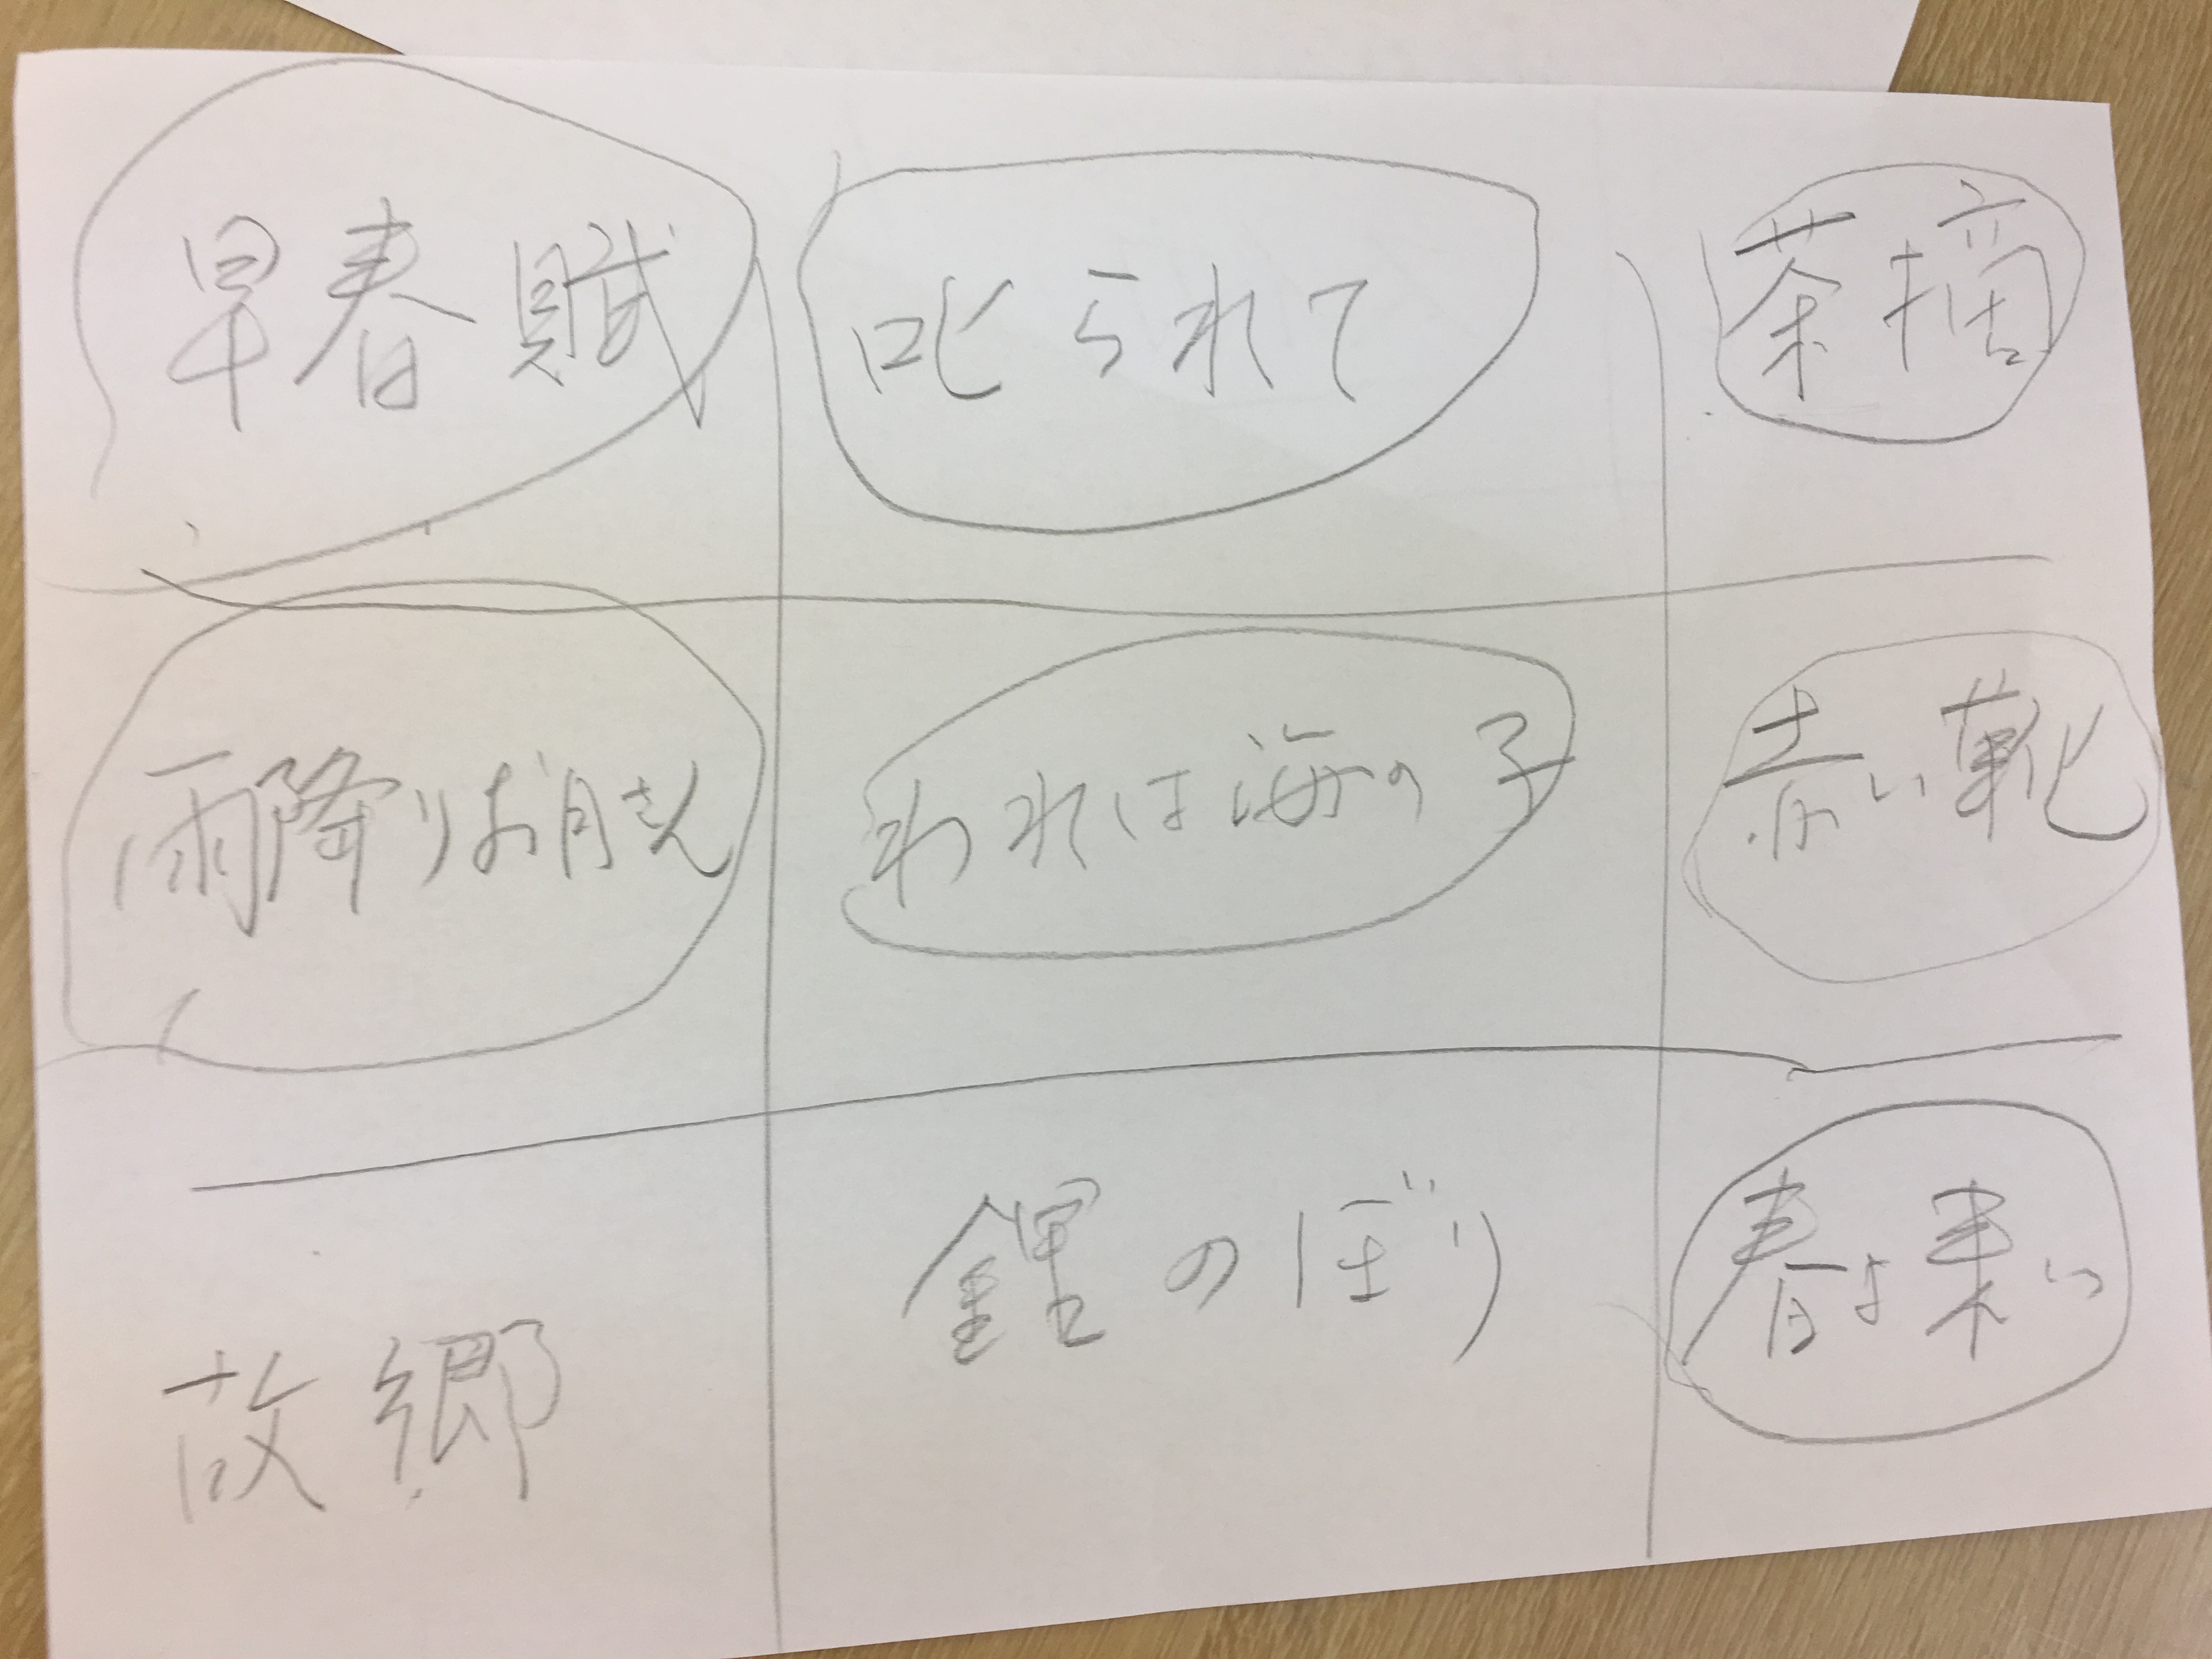 早春賦
叱られて
茶摘
雨降りお月さん
われは海の子
赤い靴
故郷
鯉のぼり
春よ来い